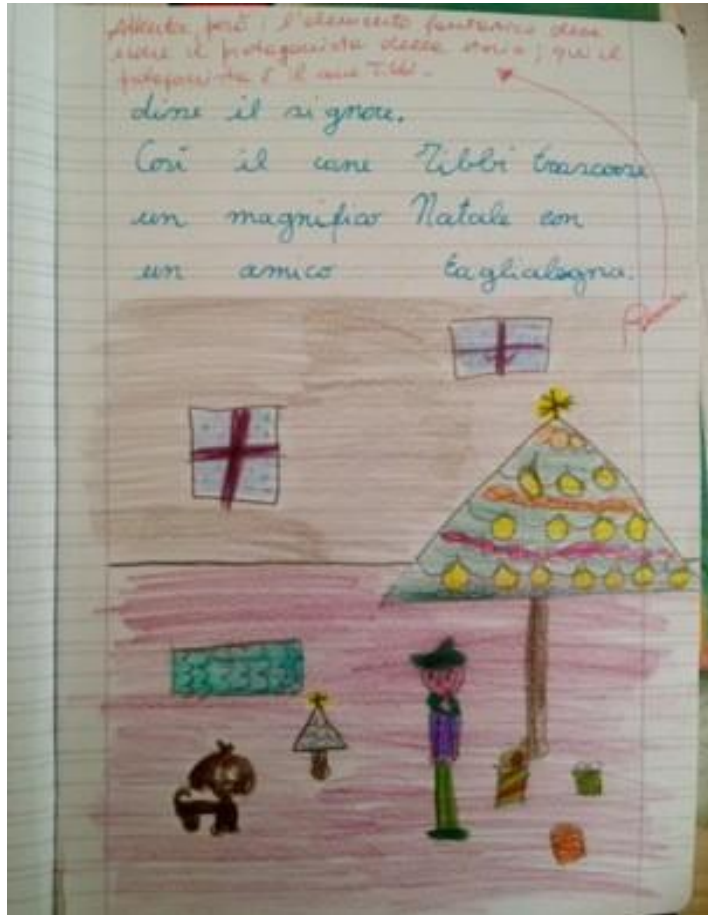 Attenta, però: l'elemento fantastico deve
essere il protagonista della storia; qui il
protagonista è il cane Tibbi.
disse il signore.
Così il cane Tibbi trascorse
un magnifico Natale con
un amico taglialegna.